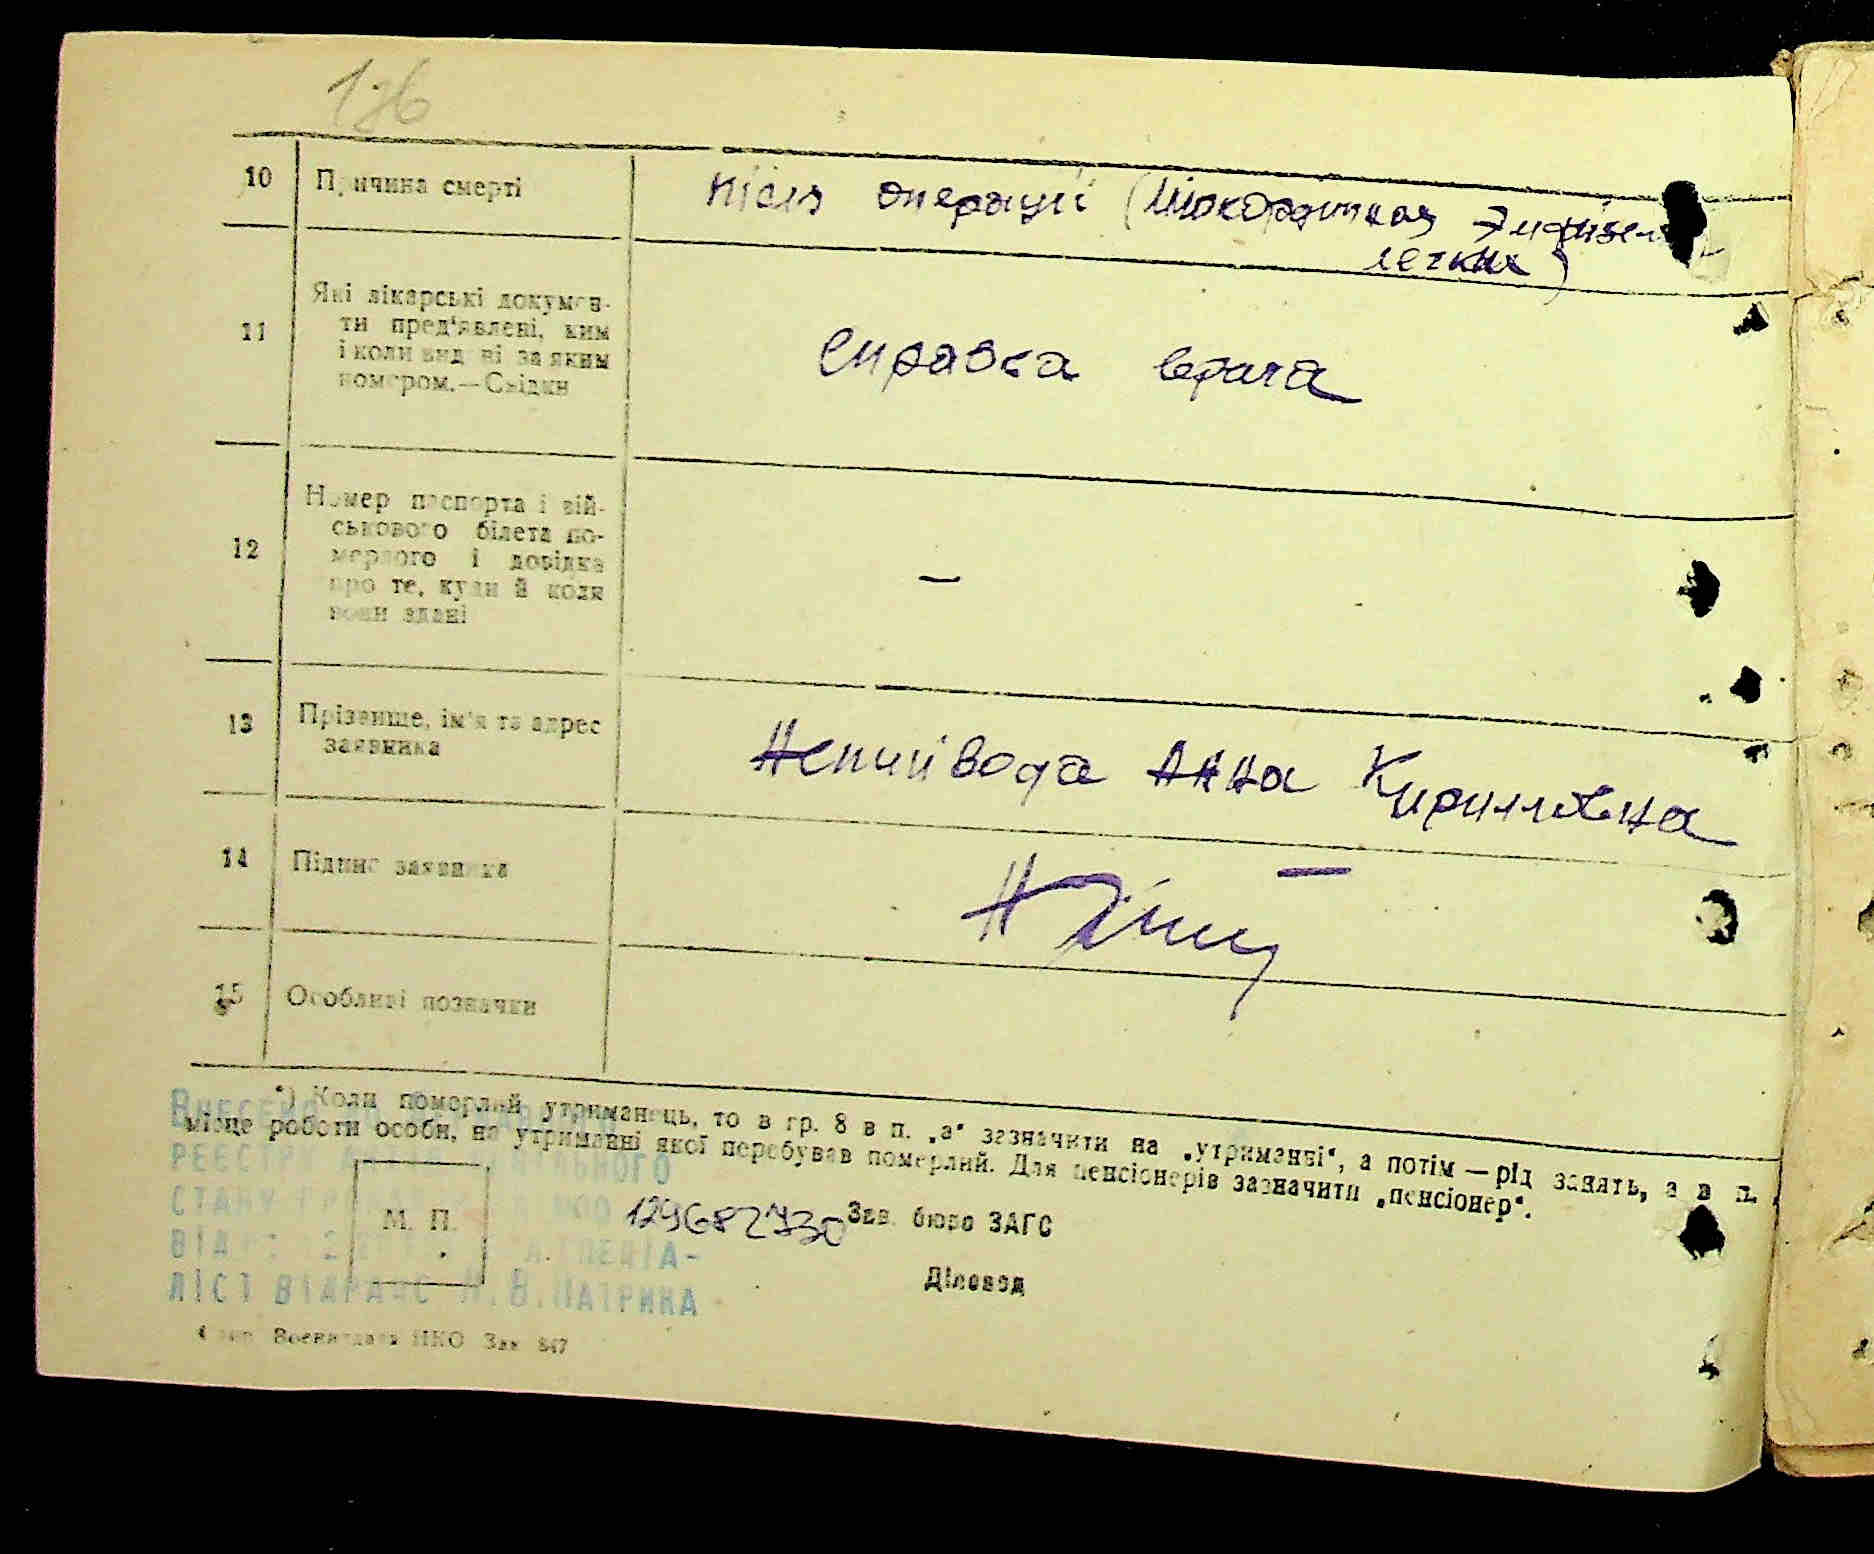 136
10 Причина смерті після операції (Міокардитная Эмфізема
легких)
11 Які лікарські докумен-
ти пред'явлені, ким
і коли видані за яким
номером.—Свідки
справка врача
12 Номер паспорта і вій-
ськового білета по-
мерлого і довідка
про те, куди й коли
вони здані
—
13 Прізвище, ім'я та адрес
заявника
Непийвода Анна Кирилловна
14 Підпис заявника
—
15 Особливі позначки
*) Коли померлий утриманець, то в гр. 8 в п. „а" зазначити на „утриманні", а потім — рід занять, а в п.
місце роботи особи, на утриманні якої перебував померлий. Для пенсіонерів зазначити „пенсіонер".
Внесено
РЕЄСТРУ
СТАНУ
М. П.
129682730
Зав. бюро ЗАГС
Діловод
ЛІСТ ВІДРАЦС Н.В.ПАТРИНА
Воениздата НКО Зак 847